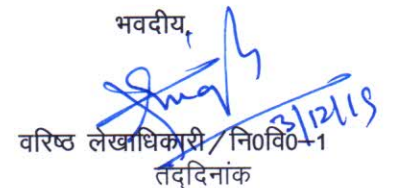 भवदीय,
3/12/19
वरिष्ठ लेखाधिकारी/नि0वि0-1
तद्दिनांक